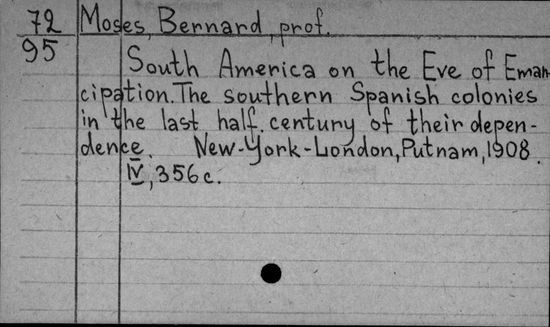 72 Moses, Bernard, prof.
95
South America on the Eve of Eman-
cipation. The southern Spanish colonies
in the last half. century of their depen-
dence. New-York-London, Putnam, 1908.
IV, 356 c.